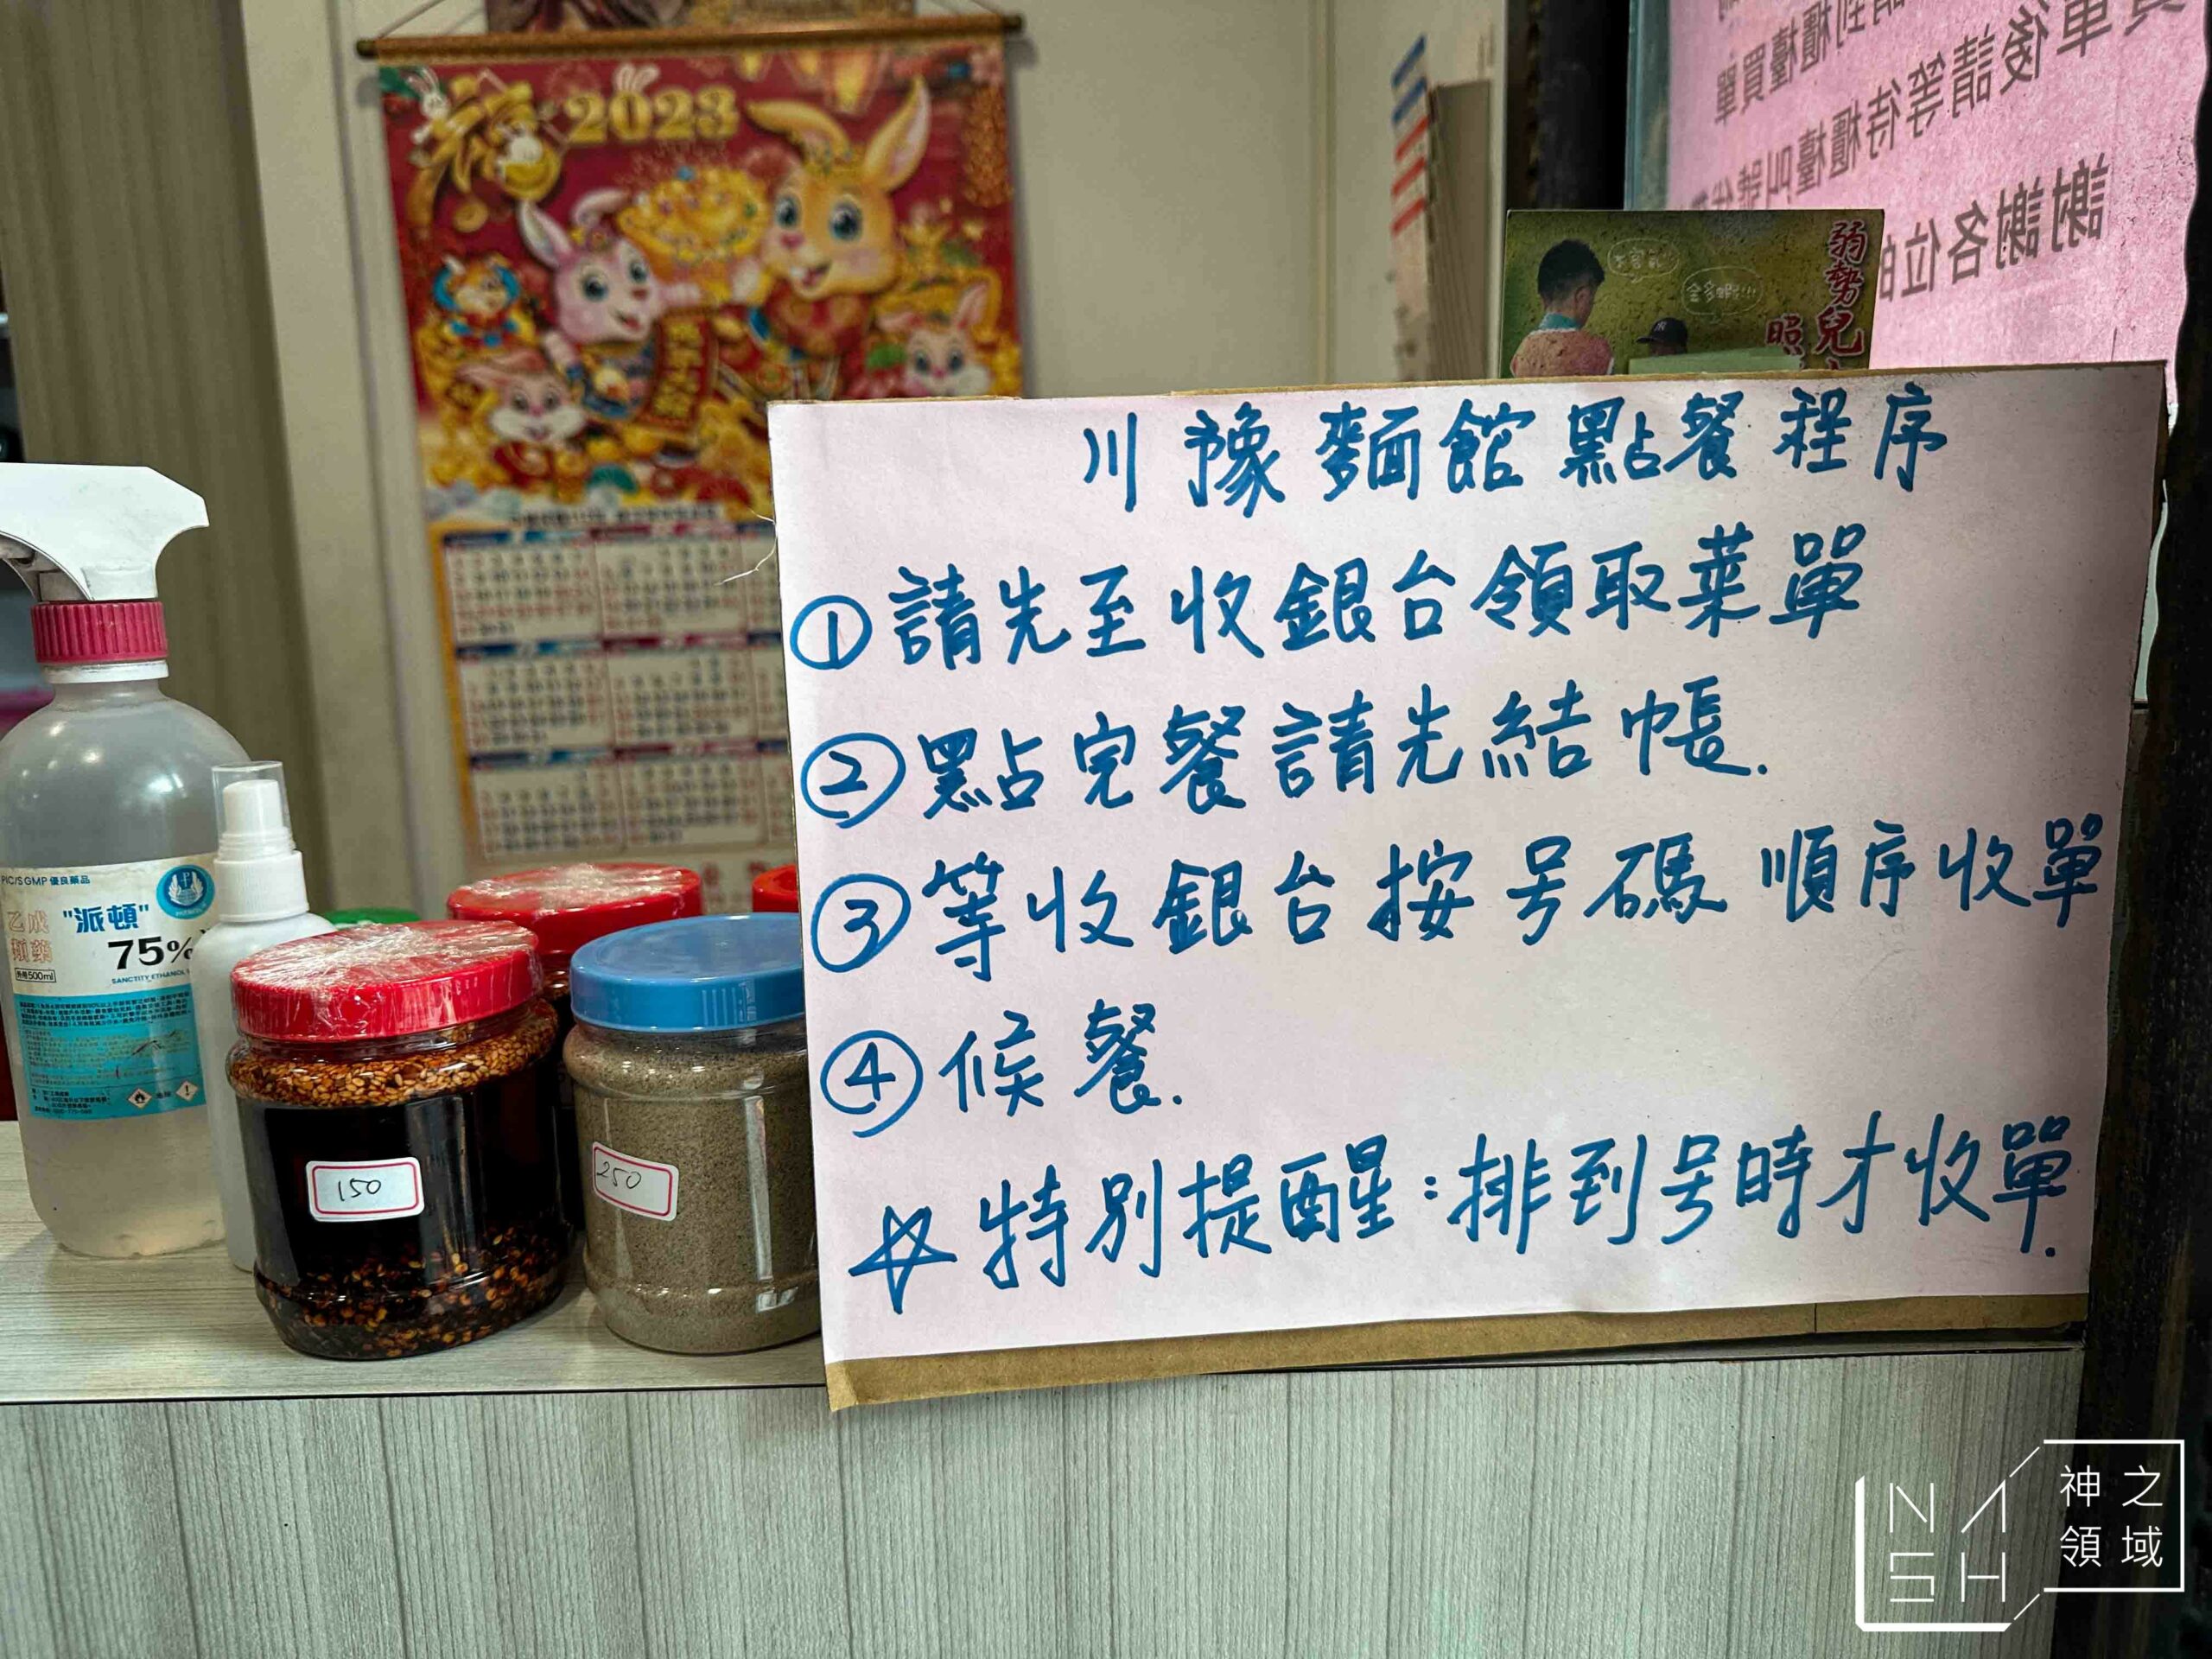 2023
買單後請等待櫃檯叫號
請到櫃檯買單
謝謝各位
弱勢兒
照
川豫麵館點餐程序
①請先至收銀台領取菜單
②點完餐請先結帳.
③等收銀台按号碼順序收單
④候餐.
☆特別提醒:排到号時才收單.
PIC/S GMP 優良藥品
乙成
類藥
"派頓"
75%
外用500ml
150
250
NASH
神之
領域